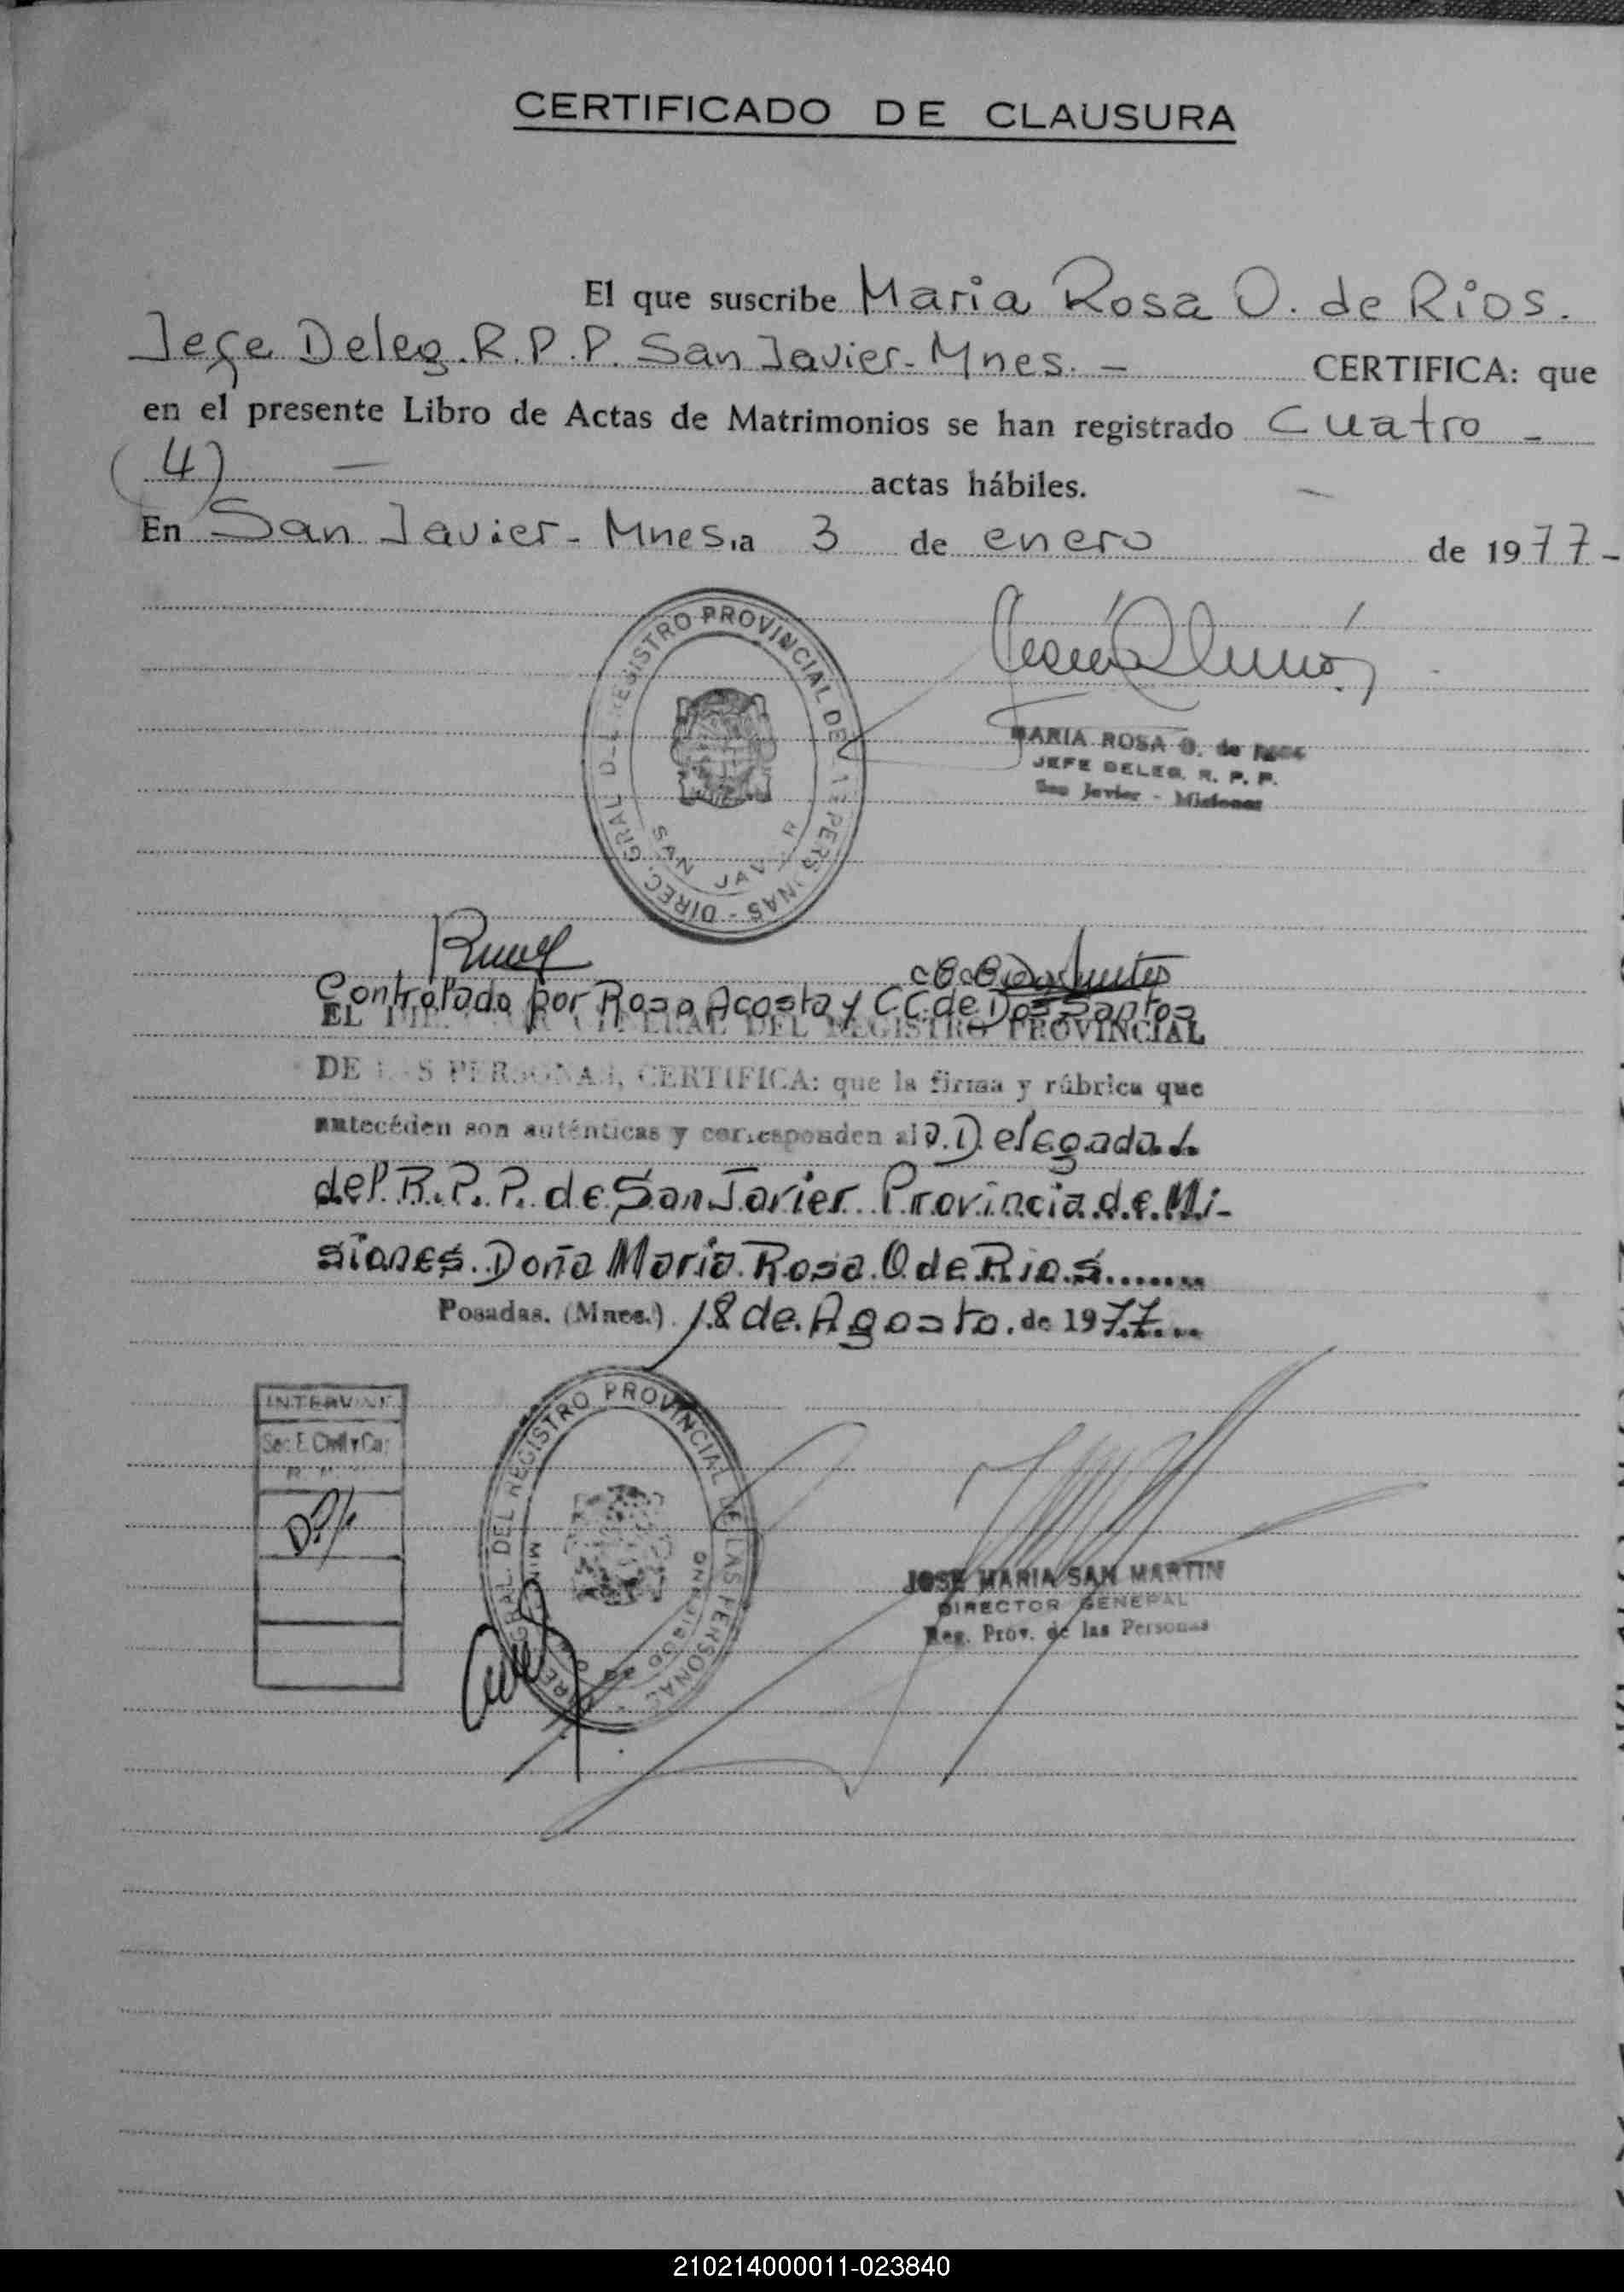 CERTIFICADO DE CLAUSURA
El que suscribe Maria Rosa O. de Rios.
Jefe Deleg. R.P.P. San Javier - Mnes. -  CERTIFICA: que
en el presente Libro de Actas de Matrimonios se han registrado Cuatro -
(4) — actas hábiles.
En San Javier - Mnes. a 3 de enero de 1977 -
DIREC. GRAL. DEL REGISTRO PROVINCIAL DE LAS PERSONAS -
SAN JAVIER
MARIA ROSA O. de RIOS
JEFE DELEG. R. P. P.
San Javier - Misiones
Controlado por Rosa Acosta y C.C. de Dos Santos
EL DIRECTOR GENERAL DEL REGISTRO PROVINCIAL
DE LAS PERSONAS, CERTIFICA: que la firma y rúbrica que
antecéden son auténticas y corresponden al a. Delegada.
del R.P.P. de San Javier Provincia de Mi-
siones. Doña Maria Rosa O de Rios.......
Posadas. (Mnes.) 18 de Agosto de 1977...
INTERVINE
Sec. E. Civil y Cap.
DEL REGISTRO PROVINCIAL DE LAS PERSONAS
JOSE MARIA SAN MARTIN
DIRECTOR GENERAL
Reg. Prov. de las Personas
210214000011-023840